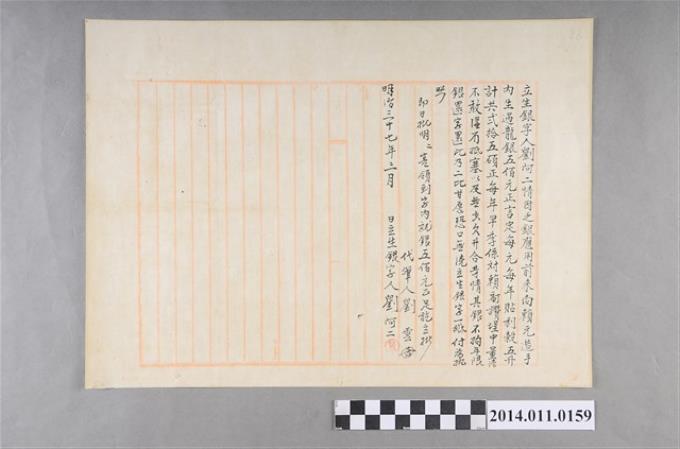 立生銀字人劉阿二情因乏銀應用前來向賴元造手
內生過龍銀五佰元正言定每元每年貼利穀五升
計共弍拾五碩正每年早季係對賴 埕中量清
不敢濕冇抵塞以及些少欠升合等情其銀不拘年限
銀還字還此乃二比甘愿恐口無憑立生銀字一紙付為執
照
即日批明阿二實領到字內龍銀五佰元正足訖立批
代筆人劉雲
明治三十七年二月 日立生銀字人劉阿二
2014.011.0159